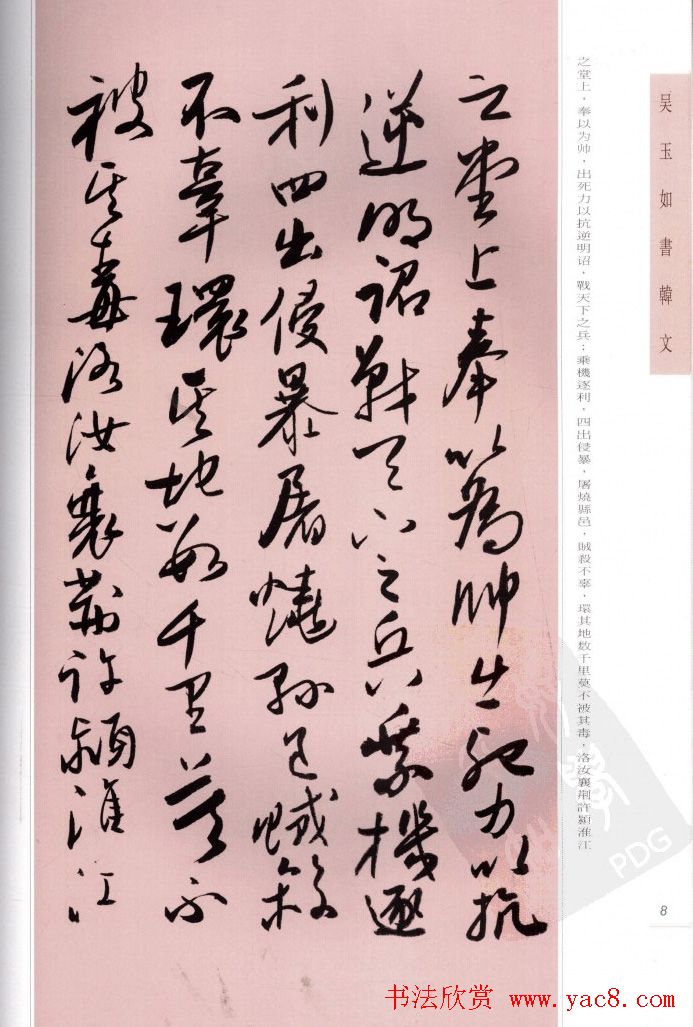 吴玉如書韓文
之堂上，奉以为帅，出死力以抗逆明诏，戰天下之兵；乘機逐利，四出侵暴，屠燒縣邑，賊殺不辜，環其地数千里莫不被其毒，洛汝襄荆許潁淮江
之堂上奉以為帥出死力以抗
逆明詔戰天下之兵乘機逐
利四出侵暴屠燒縣邑賊殺
不辜環其地數千里莫不
被其毒洛汝襄荊許潁淮江
8
PDG
书法欣赏 www.yac8.com